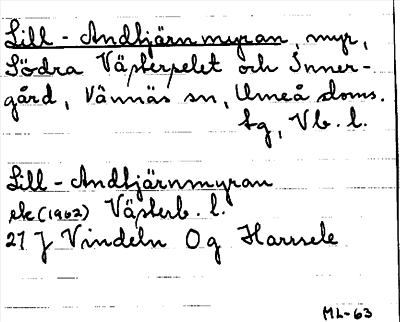 Lill-Andtjärnmyran, myr,
Södra Västerselet och Inner-
gård, Vännäs sn, Umeå doms.
tg, Vb. l.
Lill-Andtjärnmyran
ek (1962) Västerb. l.
21 J Vindeln 0g Harrsele
ML-63